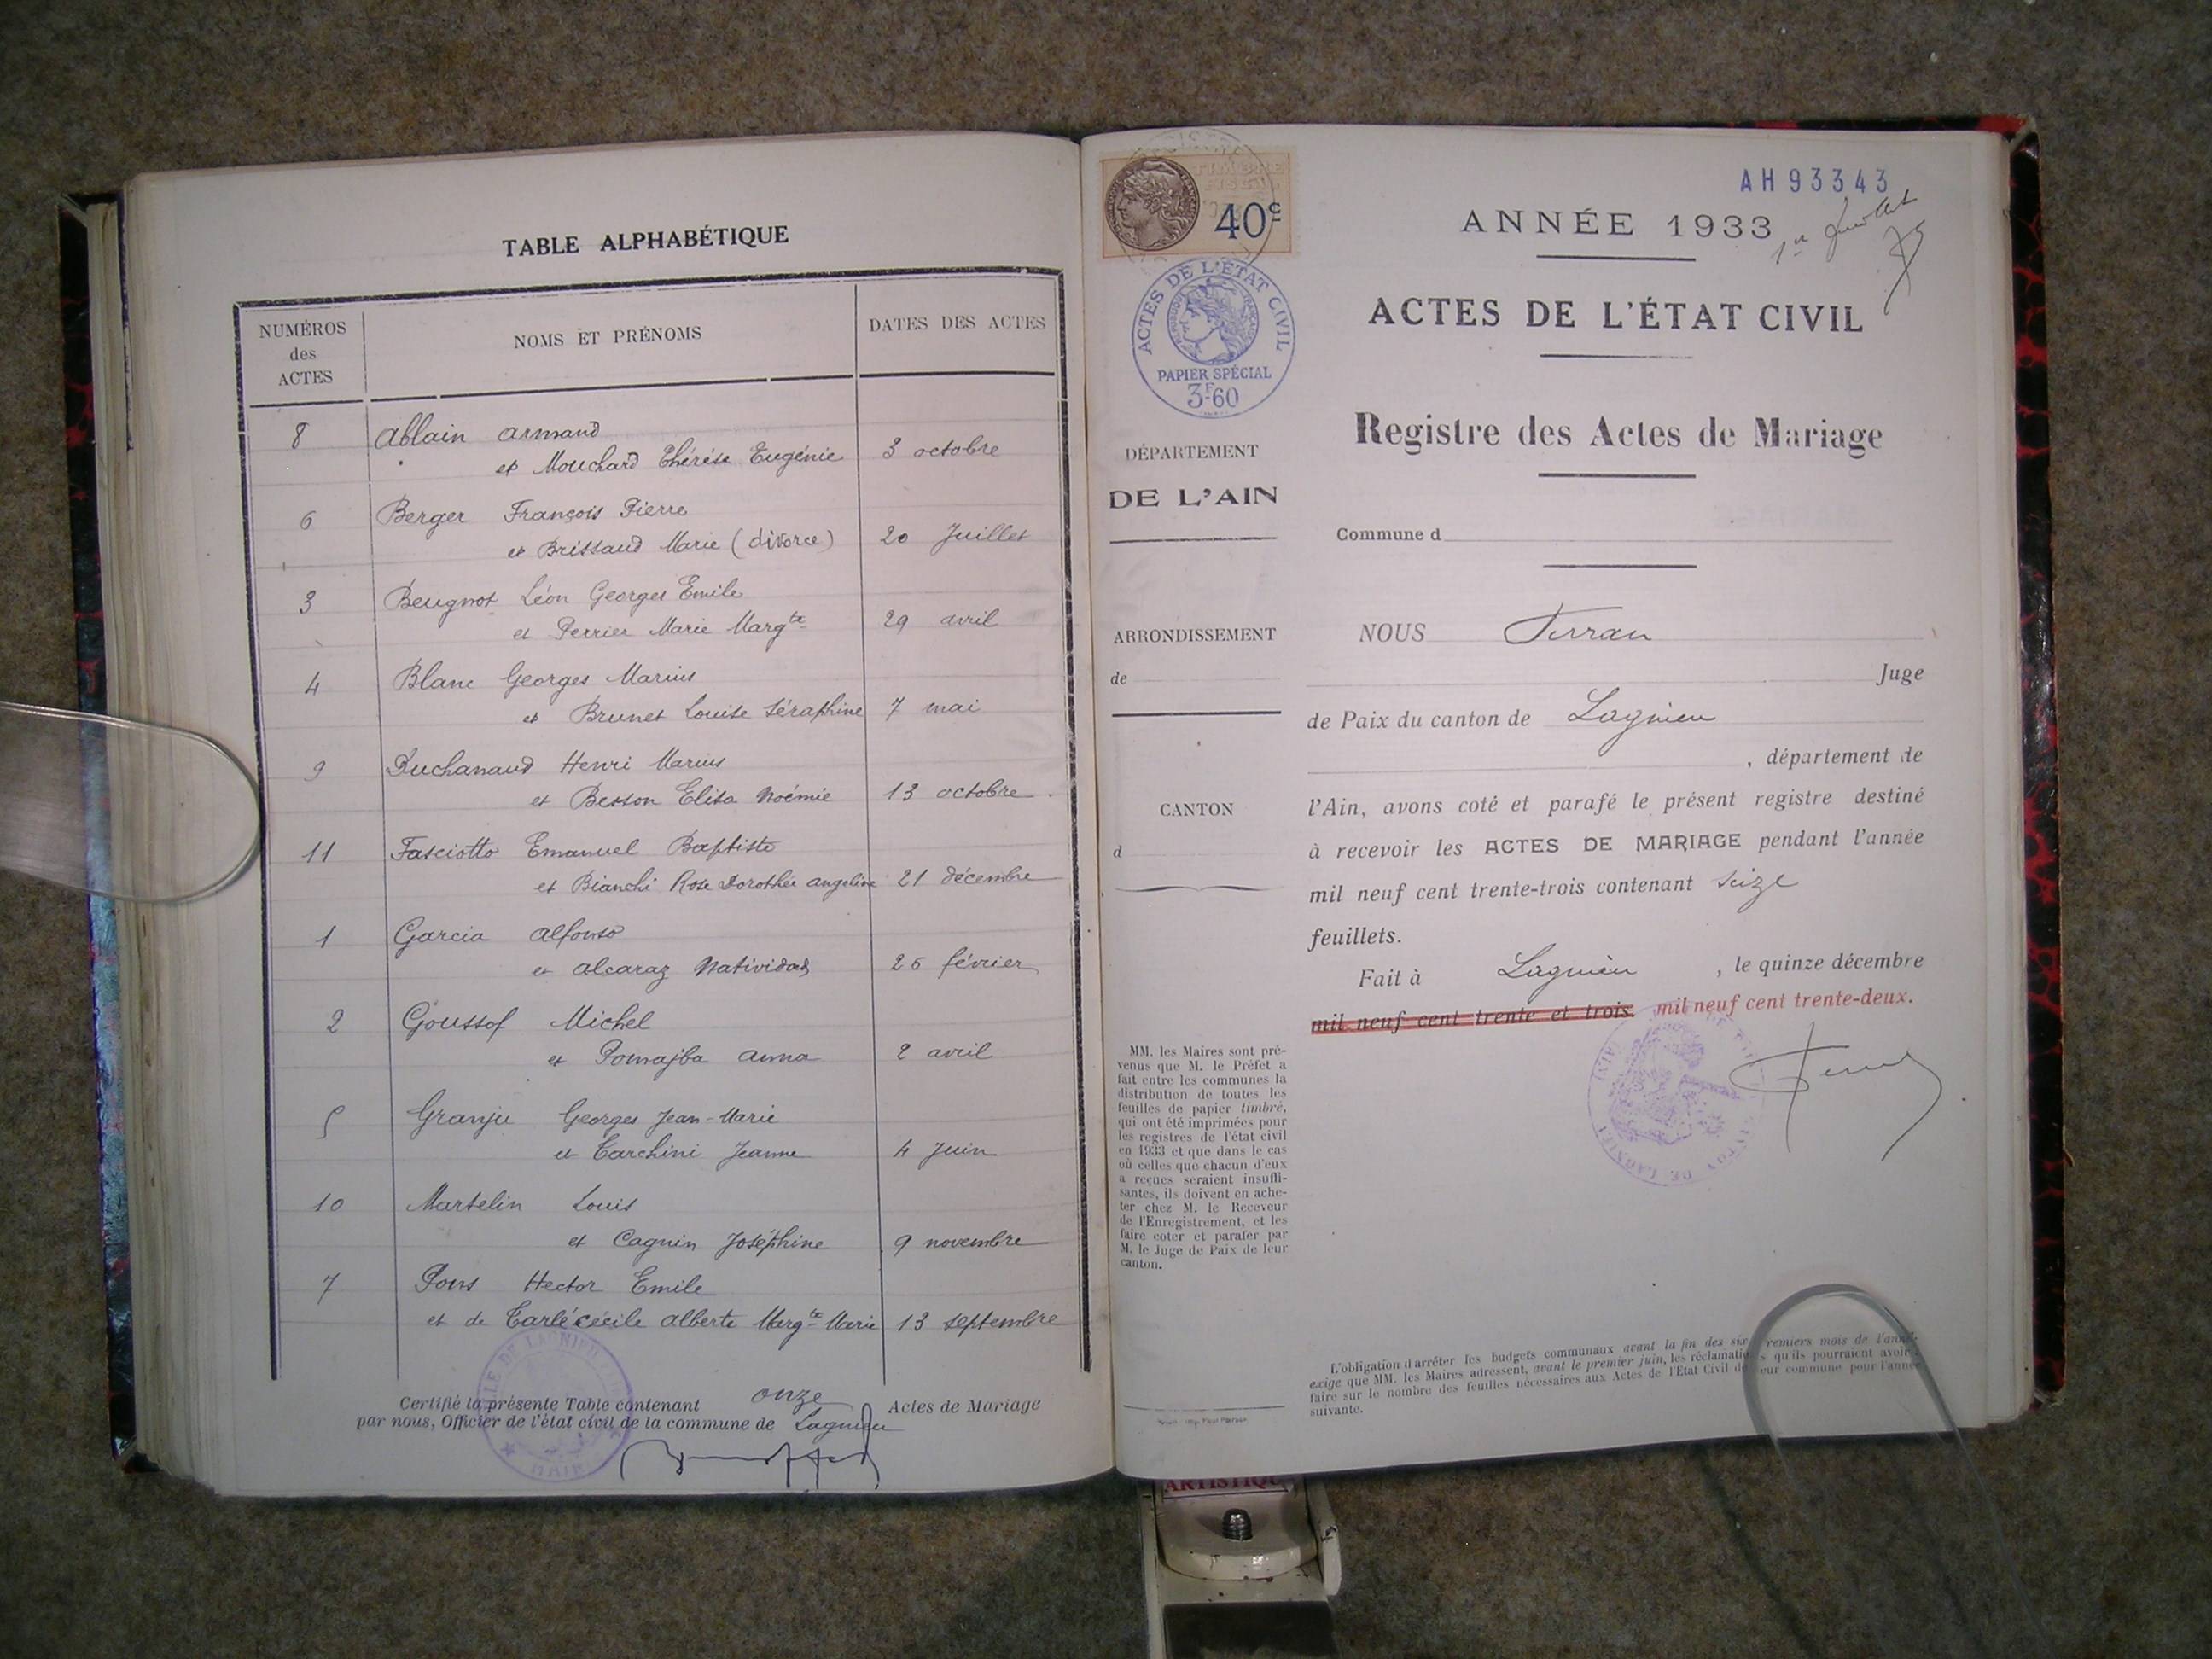 TABLE ALPHABÉTIQUE
NUMÉROS
des
ACTES
NOMS ET PRÉNOMS
DATES DES ACTES
8 Ablain Armand
et Mouchard Thérèse Eugénie 3 octobre
6 Berger François Pierre
et Brissaud Marie (divorce) 20 Juillet
3 Beugnot Léon Georges Emile
et Perrier Marie Margte 29 avril
4 Blanc Georges Marius
et Brunet Louise Séraphine 7 mai
9 Duchanaud Henri Marius
et Besson Elisa Noémie 13 octobre
11 Fasciotto Emanuel Baptiste
et Bianchi Rose Dorothée Angeline 21 décembre
1 Garcia Alfonso
et Alcaraz Natividad 26 février
2 Goussof Michel
et Pomajba Anna 2 avril
5 Granju Georges Jean-Marie
et Tarchini Jeanne 4 Juin
10 Martelin Louis
et Cagnin Joséphine 9 novembre
7 Pons Hector Emile
et de Tarlé Cécile Alberte Margte Marie 13 septembre
Certifié la présente Table contenant onze Actes de Mariage
par nous, Officier de l'état civil de la commune de Lagnieu
TIMBRE
FISCAL
40c
ACTES DE L'ÉTAT CIVIL
PAPIER SPÉCIAL
3F60
DÉPARTEMENT
DE L'AIN
ARRONDISSEMENT
de
CANTON
d
MM. les Maires sont pré-
venus que M. le Préfet a
fait entre les communes la
distribution de toutes les
feuilles de papier timbré,
qui ont été imprimées pour
les registres de l'état civil
en 1933 et que dans le cas
où celles que chacun d'eux
a reçues seraient insuffi-
santes, ils doivent en ache-
ter chez M. le Receveur
de l'Enregistrement, et les
faire coter et parafer par
M. le Juge de Paix de leur
canton.
AH93343
ANNÉE 1933
ACTES DE L'ÉTAT CIVIL
Registre des Actes de Mariage
Commune d
NOUS Ferran
Juge
de Paix du canton de Lagnieu
, département de
l'Ain, avons coté et parafé le présent registre destiné
à recevoir les ACTES DE MARIAGE pendant l'année
mil neuf cent trente-trois contenant seize
feuillets.
Fait à Lagnieu, le quinze décembre
mil neuf cent trente et trois mil neuf cent trente-deux.
L'obligation d'arrêter les budgets communaux avant la fin des six premiers mois de l'année
exige que MM. les Maires adressent, avant le premier juin, les réclamations qu'ils pourraient avoir à
faire sur le nombre des feuilles nécessaires aux Actes de l'Etat Civil de leur commune pour l'année
suivante.
ARTISTIQUE